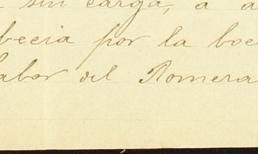 sin carga, a a
becia por la boc
labor del Romera